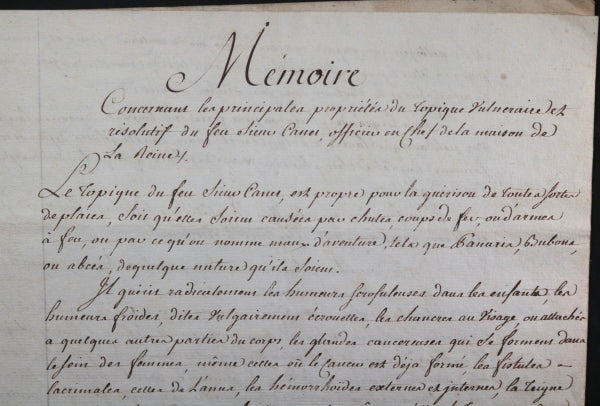 Mémoire
Concernant les principales propriétés du Topique Vulneraire et
résolutif du feu Sieur Canet, officier en Chef de la maison de
La Reine.
Le Topique du feu Sieur Canet, est propre pour la guérison de Toutes sortes
de plaies, soit qu'elles soient causées par chutes, coups de feu, ou d'armes
à feu, ou par ce qu'on nomme maux d'aventure, tels que Panaris, Bubons,
ou abcès, de quelque nature qu'ils soient.
Il guérit radicalement les humeurs scrofuleuses dans les enfants, les
humeurs froides, dites Vulgairement écrouelles, les chancres au Visage ou attachés
à quelques autres parties du corps, les glandes cancereuses qui se forment dans
le sein des femmes, même celles où le Cancer est déjà formé les fistules
lacrimales, celles de L'anus, les hémorrhoïdes externes et internes, la Teigne